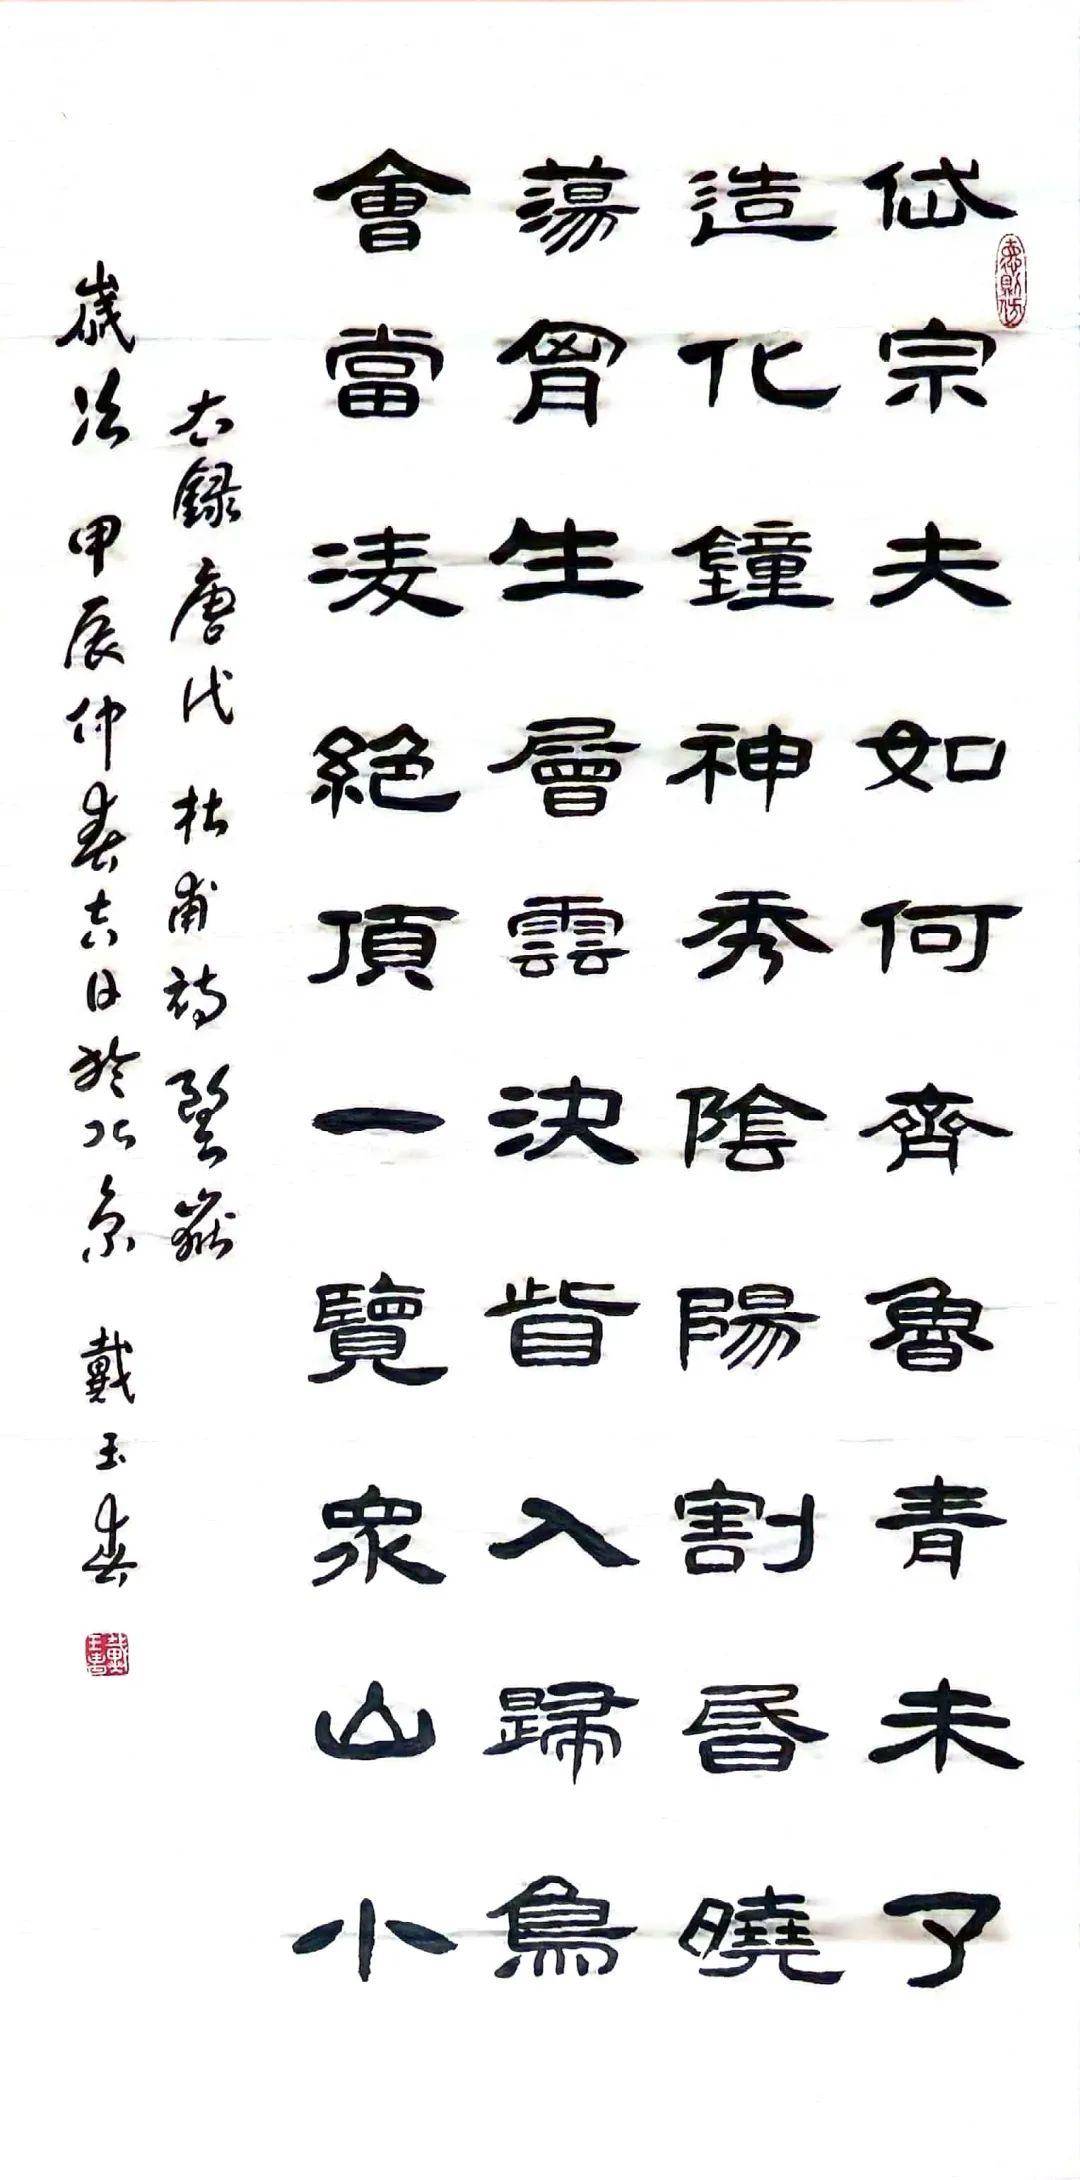 岱宗夫如何齊魯青未了
造化鐘神秀陰陽割昏曉
蕩胷生層雲決眥入歸鳥
會當凌絕頂一覽衆山小
右錄唐代杜甫詩望嶽
歲次甲辰仲春吉日於北京戴玉春